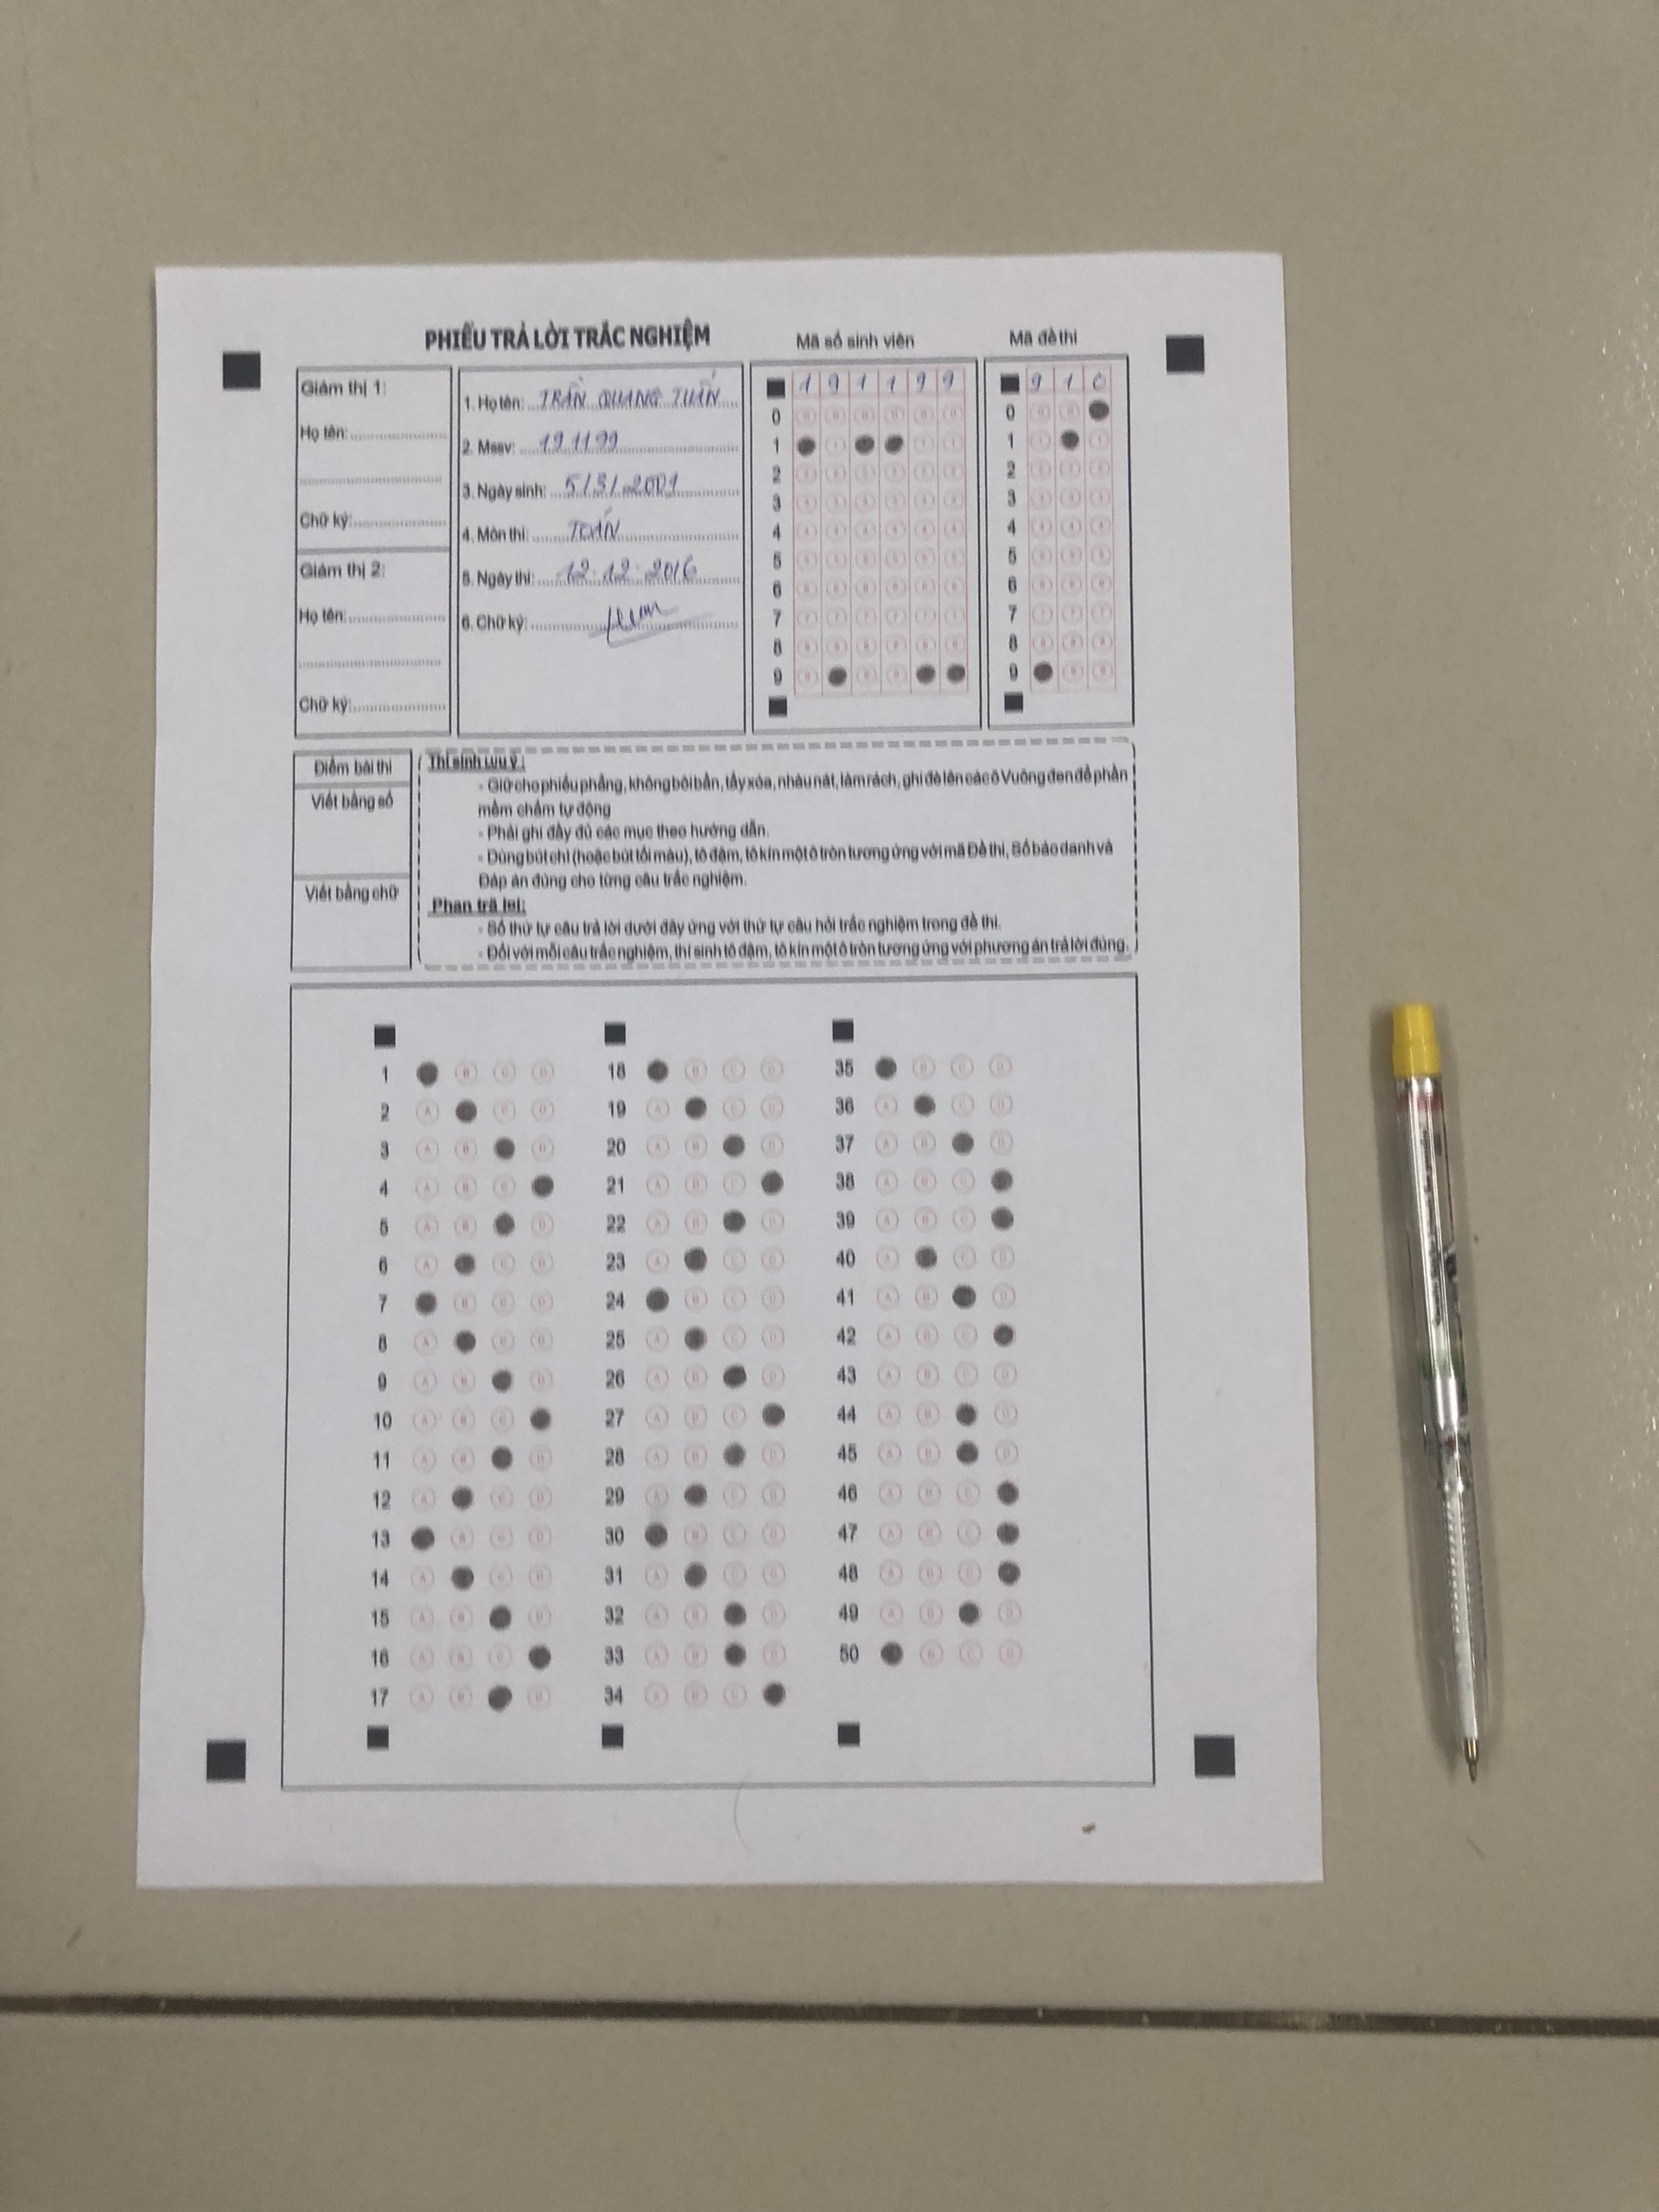 PHIẾU TRẢ LỜI TRẮC NGHIỆM
Mã số sinh viên
Mã đề thi
Giám thị 1:
Họ tên:
Chữ ký:
Giám thị 2:
Họ tên:
Chữ ký:
1. Họ tên: TRẦN QUANG TUẤN
2. Mssv: 191199
3. Ngày sinh: 5/3/2001
4. Môn thi: TOÁN
5. Ngày thi: 12.12.2016
6. Chữ ký:
1 9 1 1 9 9
0
1
2
3
4
5
6
7
8
9
9 1 0
0
1
2
3
4
5
6
7
8
9
Điểm bài thi
Viết bằng số
Viết bằng chữ
Thí sinh lưu ý:
- Giữ cho phiếu phẳng, không bôi bẩn, tẩy xóa, nhàu nát, làm rách, ghi đè lên các ô Vuông đen để phần
mềm chấm tự động
- Phải ghi đầy đủ các mục theo hướng dẫn.
- Dùng bút chì (hoặc bút tối màu), tô đậm, tô kín một ô tròn tương ứng với mã Đề thi, Số báo danh và
Đáp án đúng cho từng câu trắc nghiệm.
Phần trả lời:
- Số thứ tự câu trả lời dưới đây ứng với thứ tự câu hỏi trắc nghiệm trong đề thi.
- Đối với mỗi câu trắc nghiệm, thí sinh tô đậm, tô kín một ô tròn tương ứng với phương án trả lời đúng.
1 B C D
2 A C D
3 A B D
4 A B C
5 A B D
6 A C D
7 B C D
8 A C D
9 A B D
10 A B C
11 A B D
12 A C D
13 B C D
14 A C D
15 A B D
16 A B C
17 A B D
18 B C D
19 A C D
20 A B D
21 A B C
22 A B D
23 A C D
24 B C D
25 A C D
26 A B D
27 A B C
28 A B D
29 A C D
30 B C D
31 A C D
32 A B D
33 A B D
34 A B C
35 B C D
36 A C D
37 A B D
38 A B C
39 A B C
40 A C D
41 A B D
42 A B C
43 A B C D
44 A B D
45 A B D
46 A B C
47 A B C
48 A B C
49 A B D
50 B C D